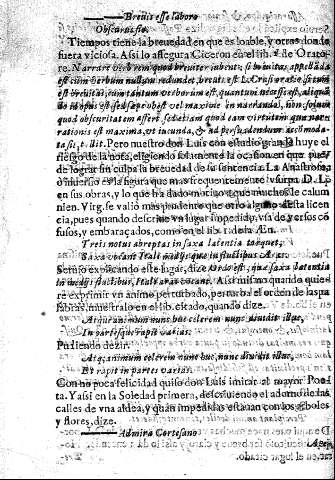 Breuis esse laboro
Obscurus fio.
Tiempos tiene la breuedad en que es loable, y otros donde
fuera viciosa. Assi lo assegura Ciceron en el lib. de Orato
re. Narrare vero rem quod breuiter iubent, si breuitas appellanda
est cum verbum nullum redundet, breuis est L. Crassi oratio: si tum
est breuitas, cum tantum verborum est, quantum necesse est, aliquã
do id opus est, sed sæpe obest vel maxime in narrando, non solum
quod obscuritatem affert, sed etiam quod eam virtutem quæ nar-
rationis est maxima, vt iucunda, & ad persuadendum accommoda-
ta sit, tollit. Pero nuestro don Luis con estudio grande huye el
riesgo de la nota, eligiendo solamente la ocasion en que pue-
de lograr sin culpa la breuedad de su sentencia. La Anastrofa,
o inuersio es la figura que mas frequentemente vsurpa D. L.
en sus obras, y lo que ha dado motiuo a que muchos le calum
nien. Virg. se valio mas prudente que otro alguno desta licen
cia, pues quando descriue vn lugar impedido, vsa de versos cõ
fusos, y embaraçados, como en el lib. 1 de la Æn.
Tres notus abreptas in saxa latentia torquet,
Saxa vocant Itali medijs quæ in fluctibus Aras.
Seruio explicando este lugar, dize Ordo est; quæ saxa latentia
in medijs fluctibus, Itali aras vocant. Assi mismo quando quie
re exprimir vn animo perturbado, perturba el orden de las pa
labras, muestralo en el lib. citado, quando dize.
Atque animum nunc huc celerem nunc diuidit illuc,
In partesque rapit varias.
Pudiendo dezir:
Atq; animum celerem nunc huc, nunc diuidit illuc,
Et rapit in partes varias.
Con no poca felicidad quiso don Luis imitar al mayor Poe
ta. Y assi en la Soledad primera, descriuiendo el adorno de las
calles de vna aldea, y quan impedidas estauan con los arboles
y flores, dize.
Admira Cortesano